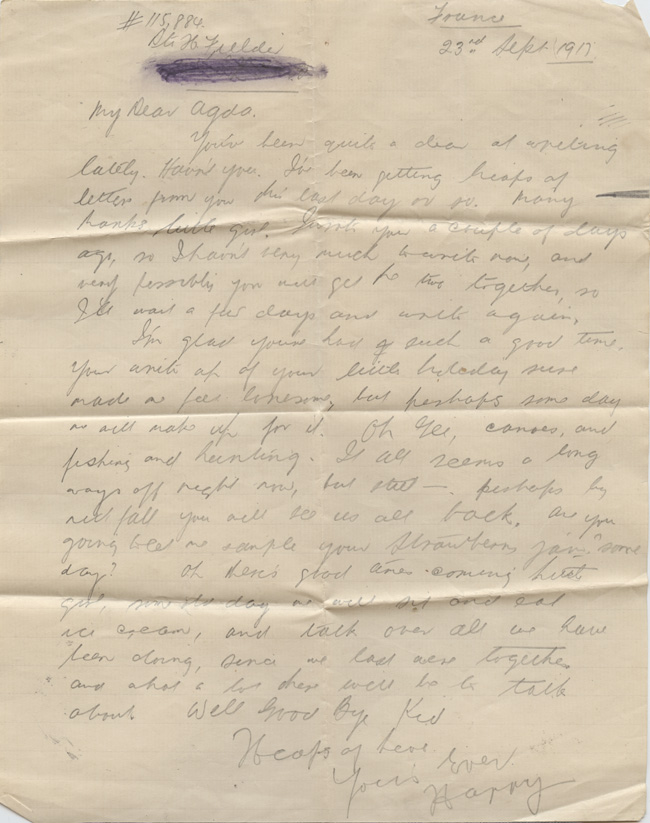 #115,884.
Pte H Fieldi
France
23rd Sept 1917
My Dear Agda.
You've been quite a dear at writing
lately. Havn't you. I've been getting heaps of
letters from you this last day or so. Many
thanks little girl. I wrote you a couple of days
ago, so I havn't very much to write now, and
very possibly you will get the two together, so
I'll wait a few days and write again.
I'm glad you've had such a good time.
Your write up of your little holeday sure
made me feel lonesome, but perhaps some day
we will make up for it. Oh Yes, canoes, and
fishing and hunting. It all seems a long
ways off right now, but still —. perhaps by
next fall you will see us all back. Are you
going to let me sample your strawberry jam "some
day? Oh there's good times coming little
girl, some day we will sit and eat
ice cream, and talk over all we have
been doing, since we last were together
and what a lot there will be to talk
about Well Good Bye Kid
Heaps of love.
Yours Ever
Harry